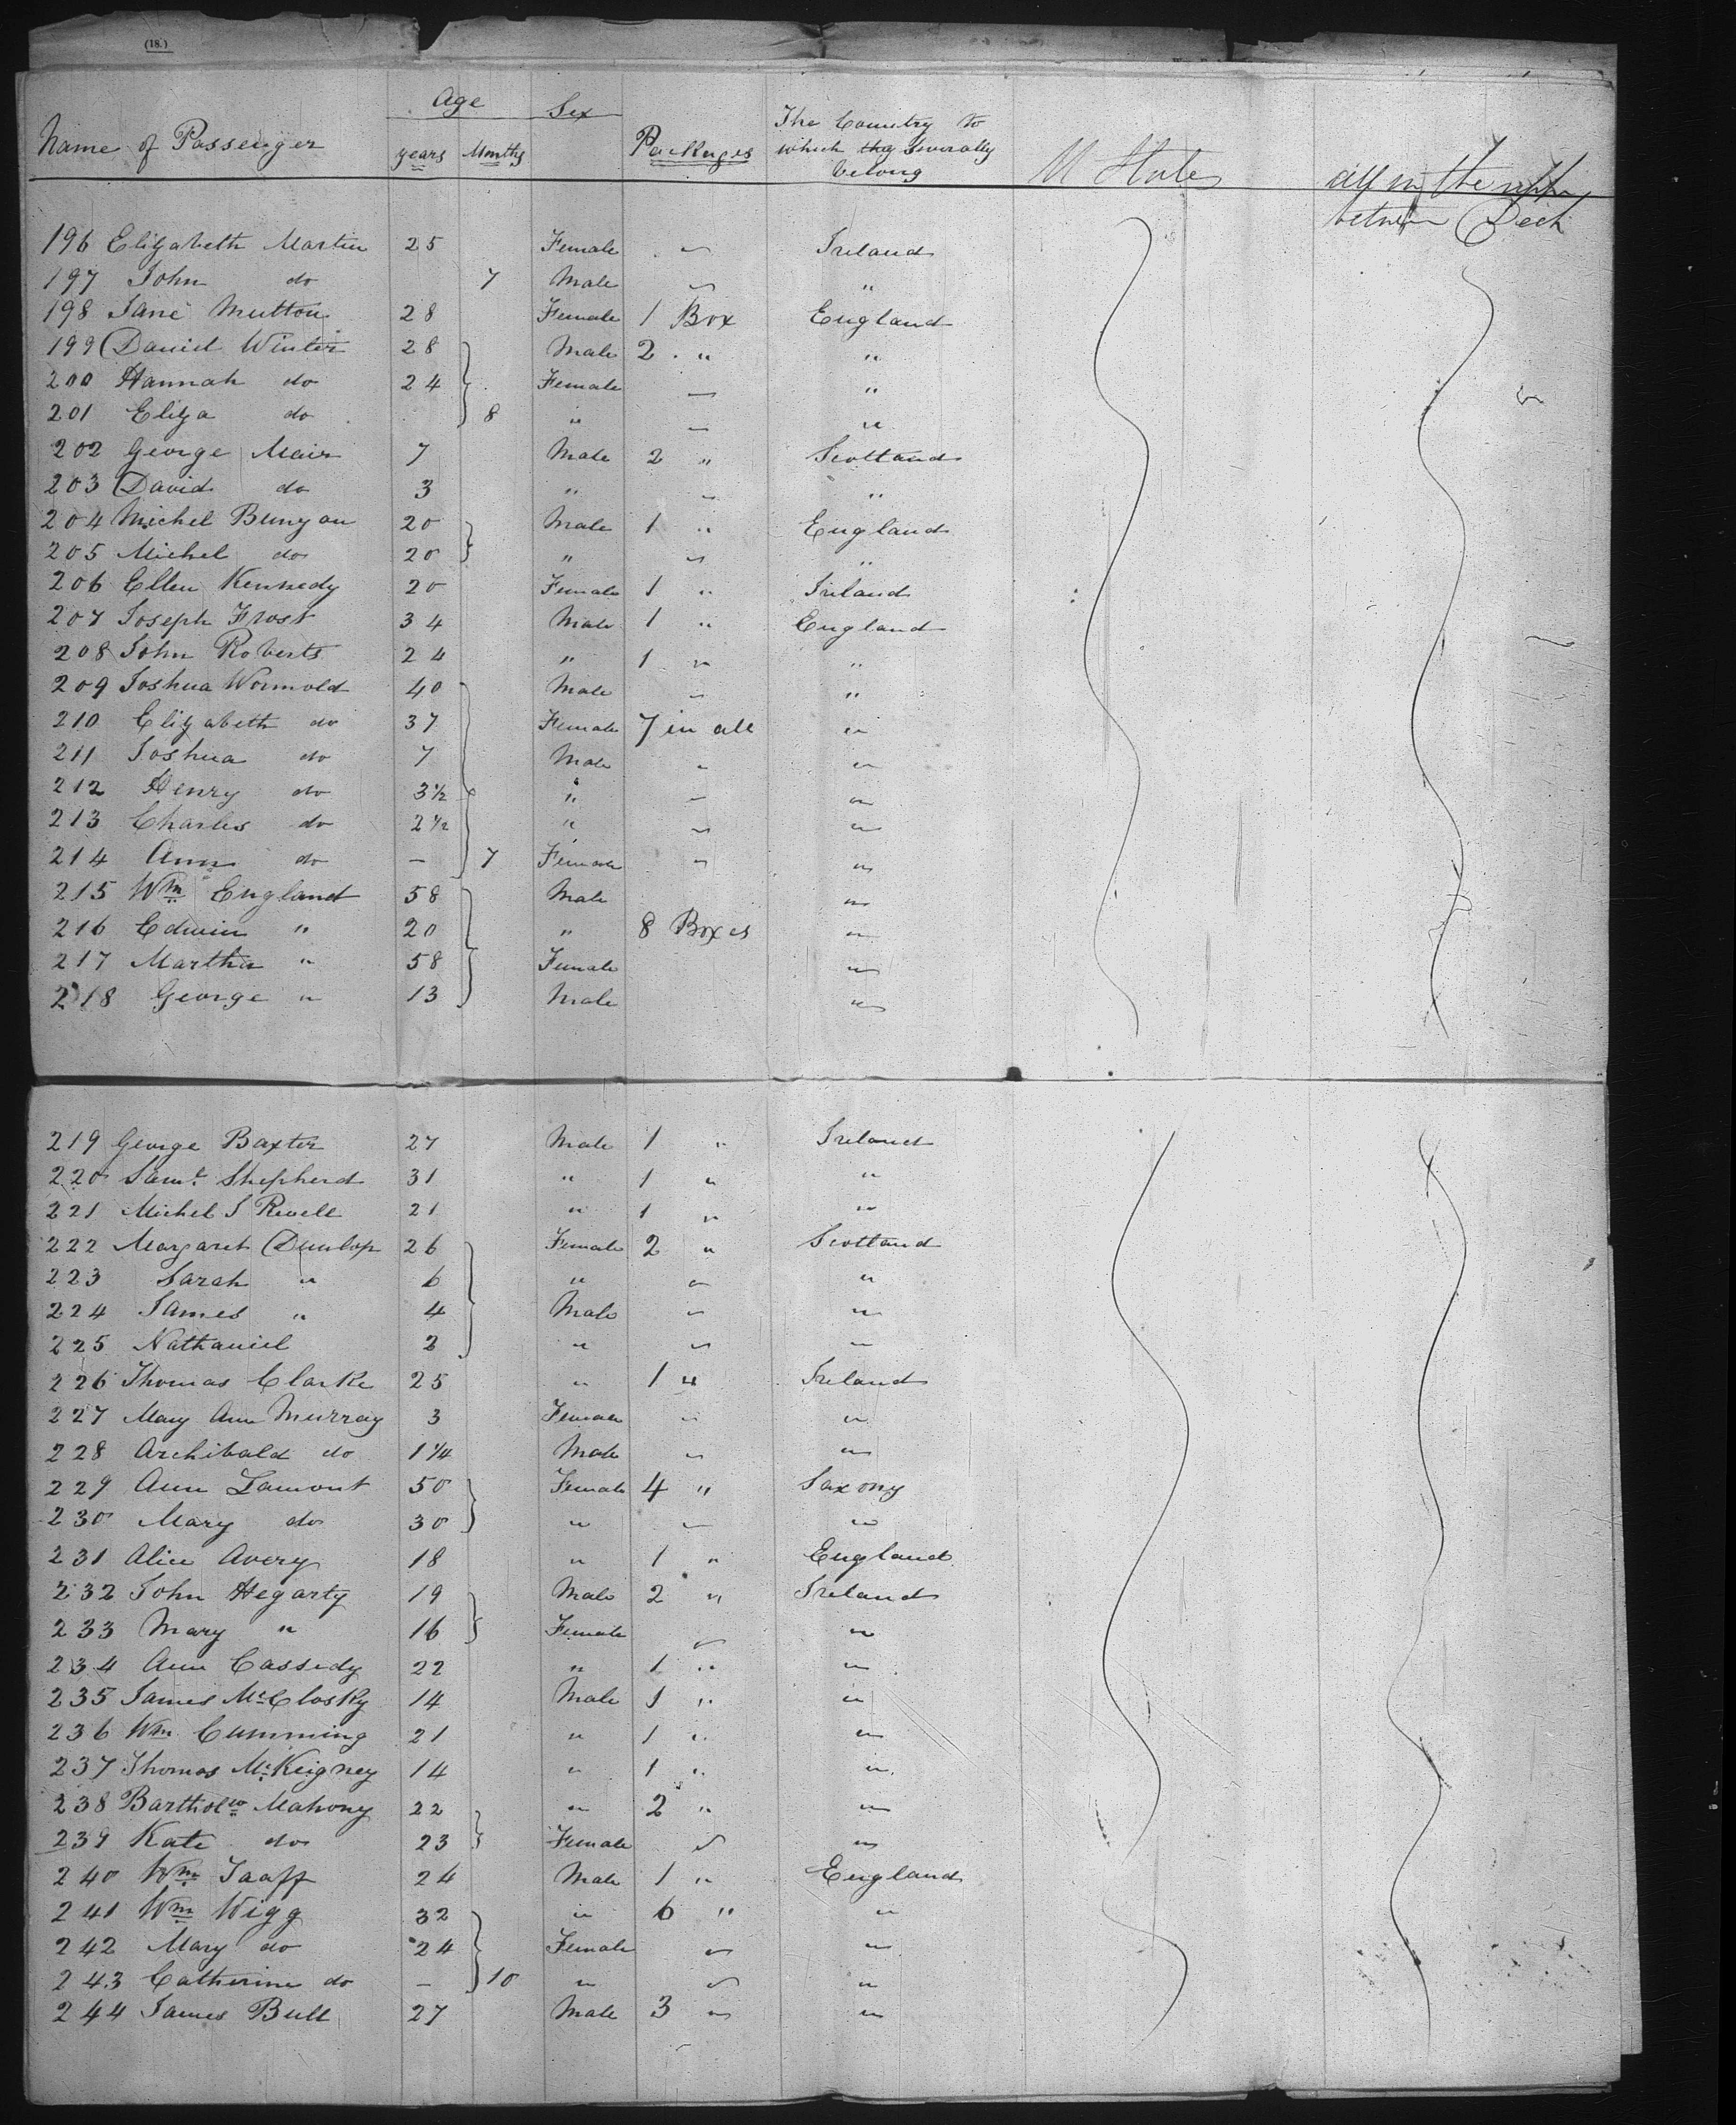 (18.)
Age Sex
Name of Passenger years Months Packages The Country to which they severally belong U States all in the upper between Deck
196 Elizabeth Martin 25 Female " Ireland
197 John do 7 Male " "
198 Jane Mutton 28 Female 1 Box England
199 Daniel Winter 28 Male 2 " "
200 Hannah do 24 Female " "
201 Eliza do 8 " " "
202 George Mair 7 Male 2 " Scotland
203 David do 3 " " "
204 Michel Bunyan 20 Male 1 " England
205 Michel do 20 " " "
206 Ellen Kennedy 20 Female 1 " Ireland
207 Joseph Frost 34 Male 1 " England
208 John Roberts 24 " 1 " "
209 Joshua Wormold 40 Male " "
210 Elizabeth do 37 Female 7 in all "
211 Joshua do 7 Male " "
212 Henry do 3½ " " "
213 Charles do 2½ " " "
214 Ann do – 7 Female " "
215 Wm England 58 Male "
216 Edwin " 20 " 8 Boxes "
217 Martha " 58 Female "
218 George " 13 Male "
219 George Baxter 27 Male 1 " Ireland
220 Saml Shepherd 31 " 1 " "
221 Michel S Revell 21 " 1 " "
222 Margaret Dunlop 26 Female 2 " Scotland
223 Sarah " 6 " " "
224 James " 4 Male " "
225 Nathaniel 2 " " "
226 Thomas Clarke 25 " 1 " Ireland
227 Mary Ann Murray 3 Female " "
228 Archibald do 1¼ Male " "
229 Ann Lamont 50 Female 4 " Saxony
230 Mary do 30 " " "
231 Alice Avery 18 " 1 " England
232 John Hegarty 19 Male 2 " Ireland
233 Mary " 16 Female " "
234 Ann Cassidy 22 " 1 " "
235 James McClosky 14 Male 1 " "
236 Wm Cumming 21 " 1 " "
237 Thomas McKeigney 14 " 1 " "
238 Bartholw Mahony 22 " 2 " "
239 Kate do 23 Female " "
240 Wm Taaff 24 Male 1 " England
241 Wm Wigg 32 " 6 " "
242 Mary do 24 Female " "
243 Catherine do – 10 " " "
244 James Bull 27 Male 3 " "